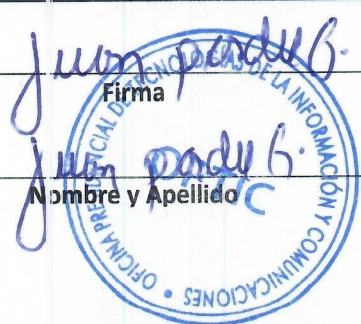 Juan
Firma
Juan
Nombre y Apellido
OFICINA PRESIDENCIAL DE TECNOLOGIAS DE LA INFORMACIÓN Y COMUNICACIONES •